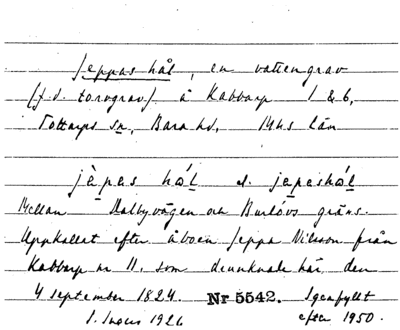 Jeppas hål, en vattengrav
(f.d. torvgrav) å Kabbarp 1 & 6,
Tottarps sn, Bara hd, Mhs län
jèpas hål el. jepashål
Mellan Dalbyvägen och Burlövs gräns.
Uppkallat efter åboen Jeppa Nilsson från
Kabbarp nr 11, som drunknade här den
4 september 1824. Nr 5542. Igenfyllt
I. Ingers 1926 efter 1950.